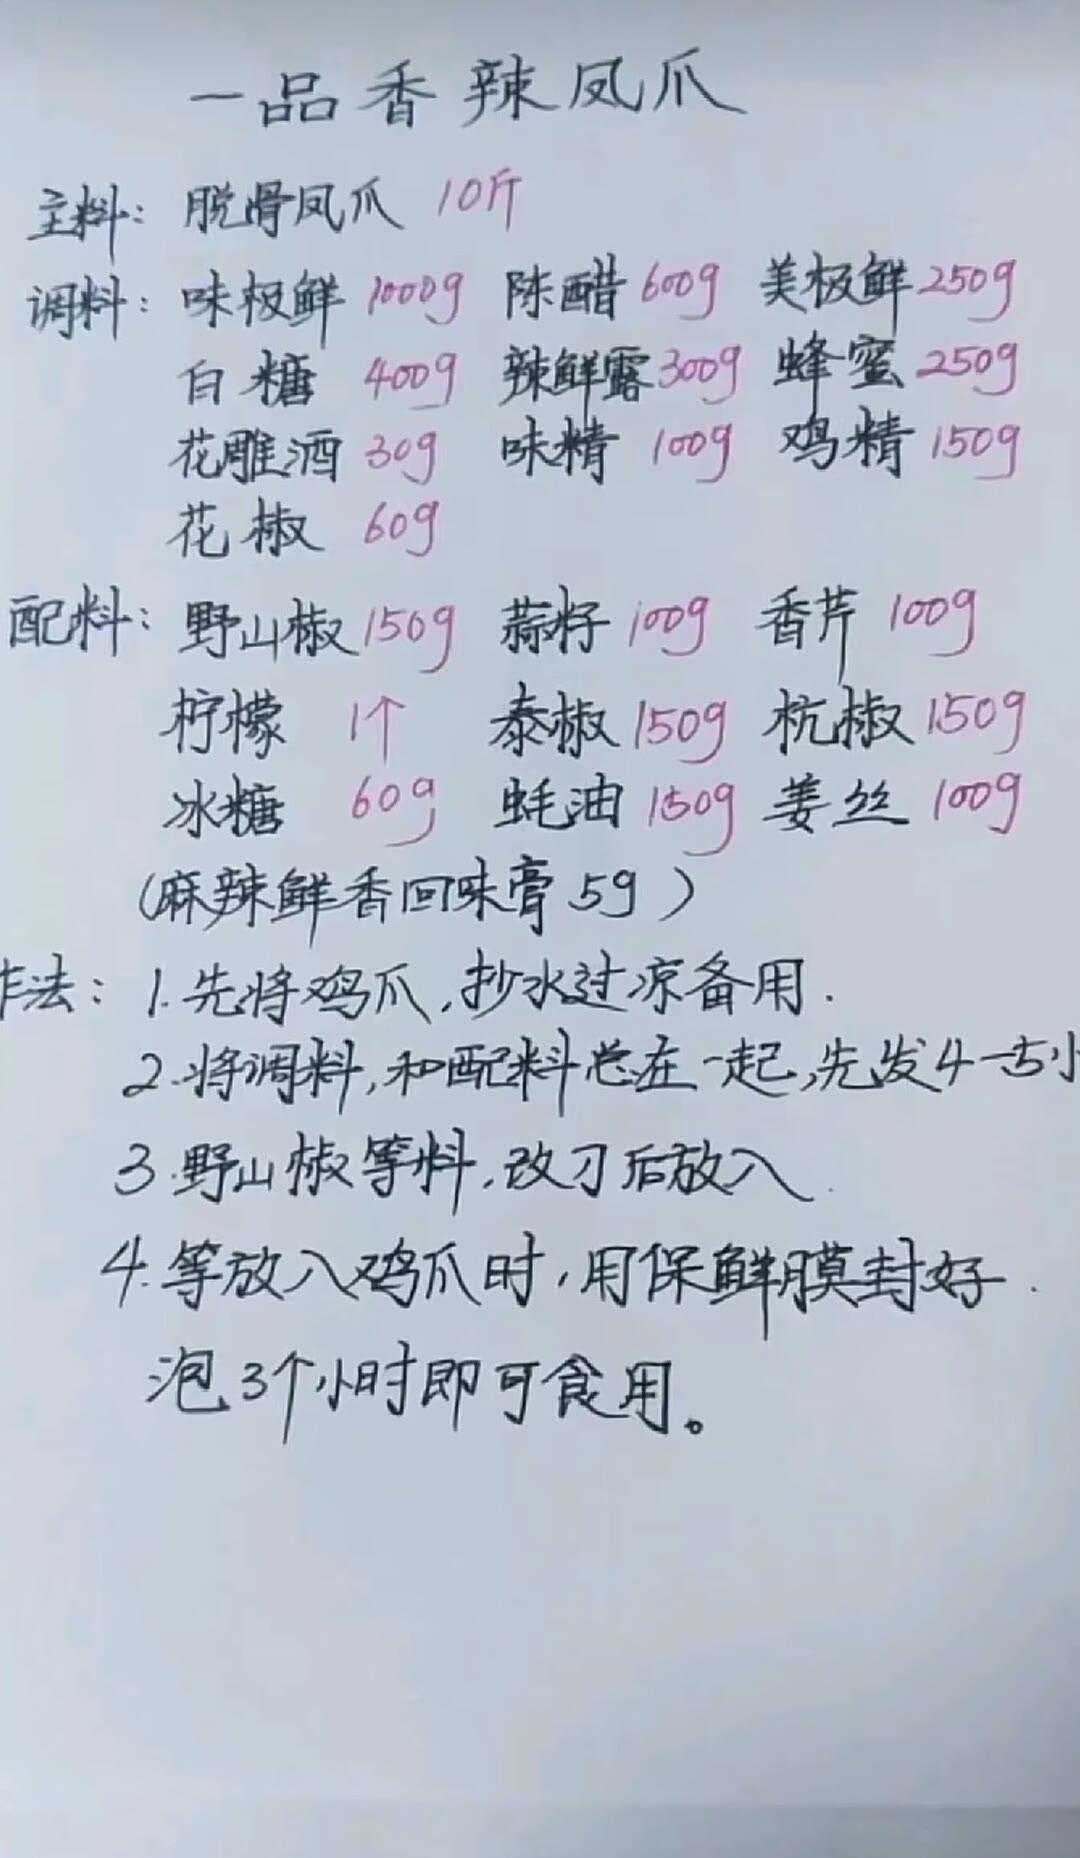 一品香辣凤爪
主料：脱骨凤爪 10斤
调料：味极鲜 1000g 陈醋 600g 美极鲜 250g
白糖 400g 辣鲜露 300g 蜂蜜 250g
花雕酒 30g 味精 100g 鸡精 150g
花椒 60g
配料：野山椒 150g 蒜籽 100g 香芹 100g
柠檬 1个 泰椒 150g 杭椒 150g
冰糖 60g 蚝油 150g 姜丝 100g
（麻辣鲜香回味膏 5g）
作法：1.先将鸡爪，抄水过凉备用.
2.将调料，和配料总在一起，先发4-5小
3.野山椒等料，改刀后放入.
4.等放入鸡爪时，用保鲜膜封好.
泡3个小时即可食用。